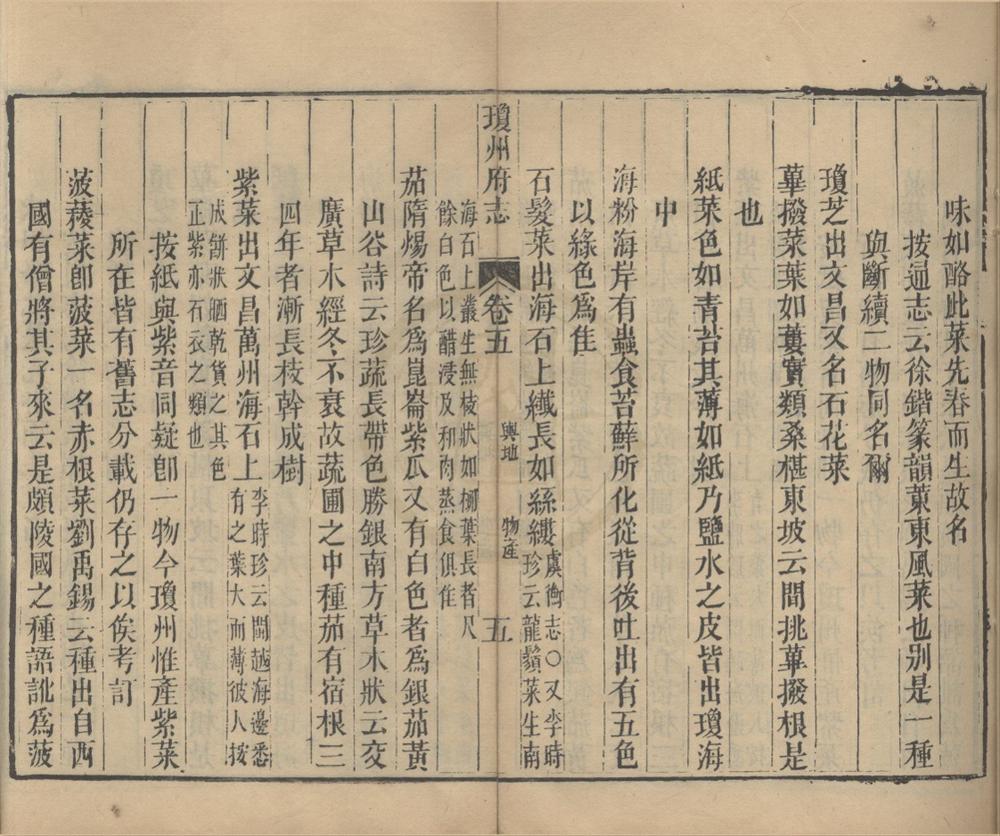 味如酪此菜先春而生故名
按通志云徐鍇篆韻蕫東風菜也别是一種
與斷續二物同名爾
瓊芝出文昌又名石花菜
蓽撥菜葉如蔞實類桑椹東坡云間挑蓽撥根是
也
紙菜色如青苔其薄如紙乃鹽水之皮皆出瓊海
中
海粉海岸有蟲食苔蘚所化從背後吐出有五色
以綠色爲佳
石髮菜出海石上纖長如絲縷虞衡志○又李時
珍云龍鬚菜生南
瓊州府志
卷五
輿地
物産
五
海石上叢生無枝狀如栁葉長者尺
餘白色以醋浸及和肉蒸食俱佳
茄隋煬帝名爲崑崙紫瓜又有白色者爲銀茄黄
山谷詩云珍蔬長帶色勝銀南方草木狀云交
廣草木經冬不衰故蔬圃之中種茄有宿根三
四年者漸長枝幹成樹
紫菜出文昌萬州海石上李時珍云閩越海邊悉
有之葉大而薄彼人挼
成餅狀晒乾貨之其色
正紫亦石衣之類也
按紙與紫音同疑卽一物今瓊州惟產紫菜
所在皆有舊志分載仍存之以俟考訂
菠薐菜卽菠菜一名赤根菜劉禹錫云種出自西
國有僧將其子來云是頗陵國之種語訛爲菠